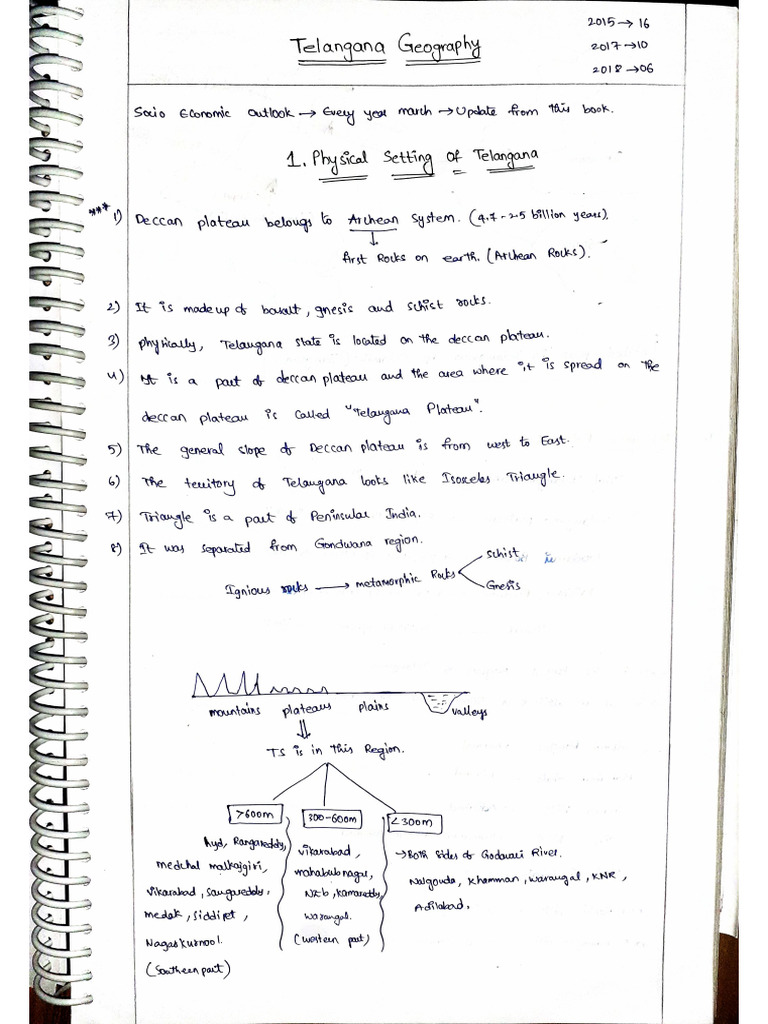 2015→ 16
Telangana Geography
2017→10
2018→06
Socio Economic Outlook → Every year march → Update from this book.
1. Physical Setting Of Telangana
*** 1) Deccan plateau belongs to Archean System. (4.7-2.5 billion years).
first Rocks on earth. (Archean Rocks).
2) It is madeup of basalt, gnesis and schist rocks.
3) physically, Telangana state is located on the deccan plateau.
4) It is a part of deccan plateau and the area where it is spread on the
deccan plateau is called "Telangana Plateau".
5) The general slope of Deccan plateau is from west to East.
6) The territory of Telangana looks like Isosceles Triangle.
7) Triangle is a part of Peninsular India.
8) It was separated from Gondwana region.
Schist
Ignious rocks → metamorphic Rocks
Gnesis
mountains plateaus plains valleys
TS is in this Region.
>600m 300-600m <300m
hyd, Rangareddy,
medchal malkajgiri,
Vikarabad, Sangareddy,
medak, siddipet,
Nagarkurnool.
(Southern part)
vikarabad,
mahabubnagar,
NZb, kamareddy,
warangal.
(western part)
→Both sides of Godavari River.
Nalgonda, khammam, warangal, KNR,
Adilabad.